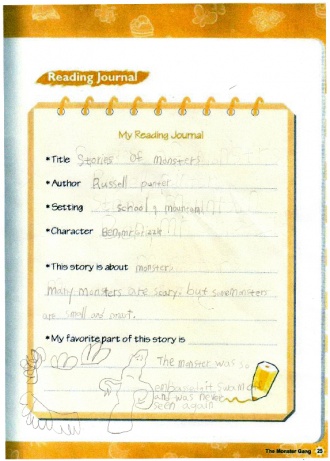 Reading Journal
My Reading Journal
• Title Stories of monsters
• Author Russell punter
• Setting school, mountain
• Character Ben, mr.
• This story is about monsters
Many monsters are scary, but some monsters
are small and smart.
• My favorite part of this story is
The monster was so
and was never
seen again
The Monster Gang 25